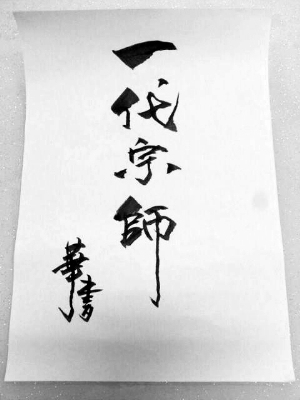 一代宗師
華書